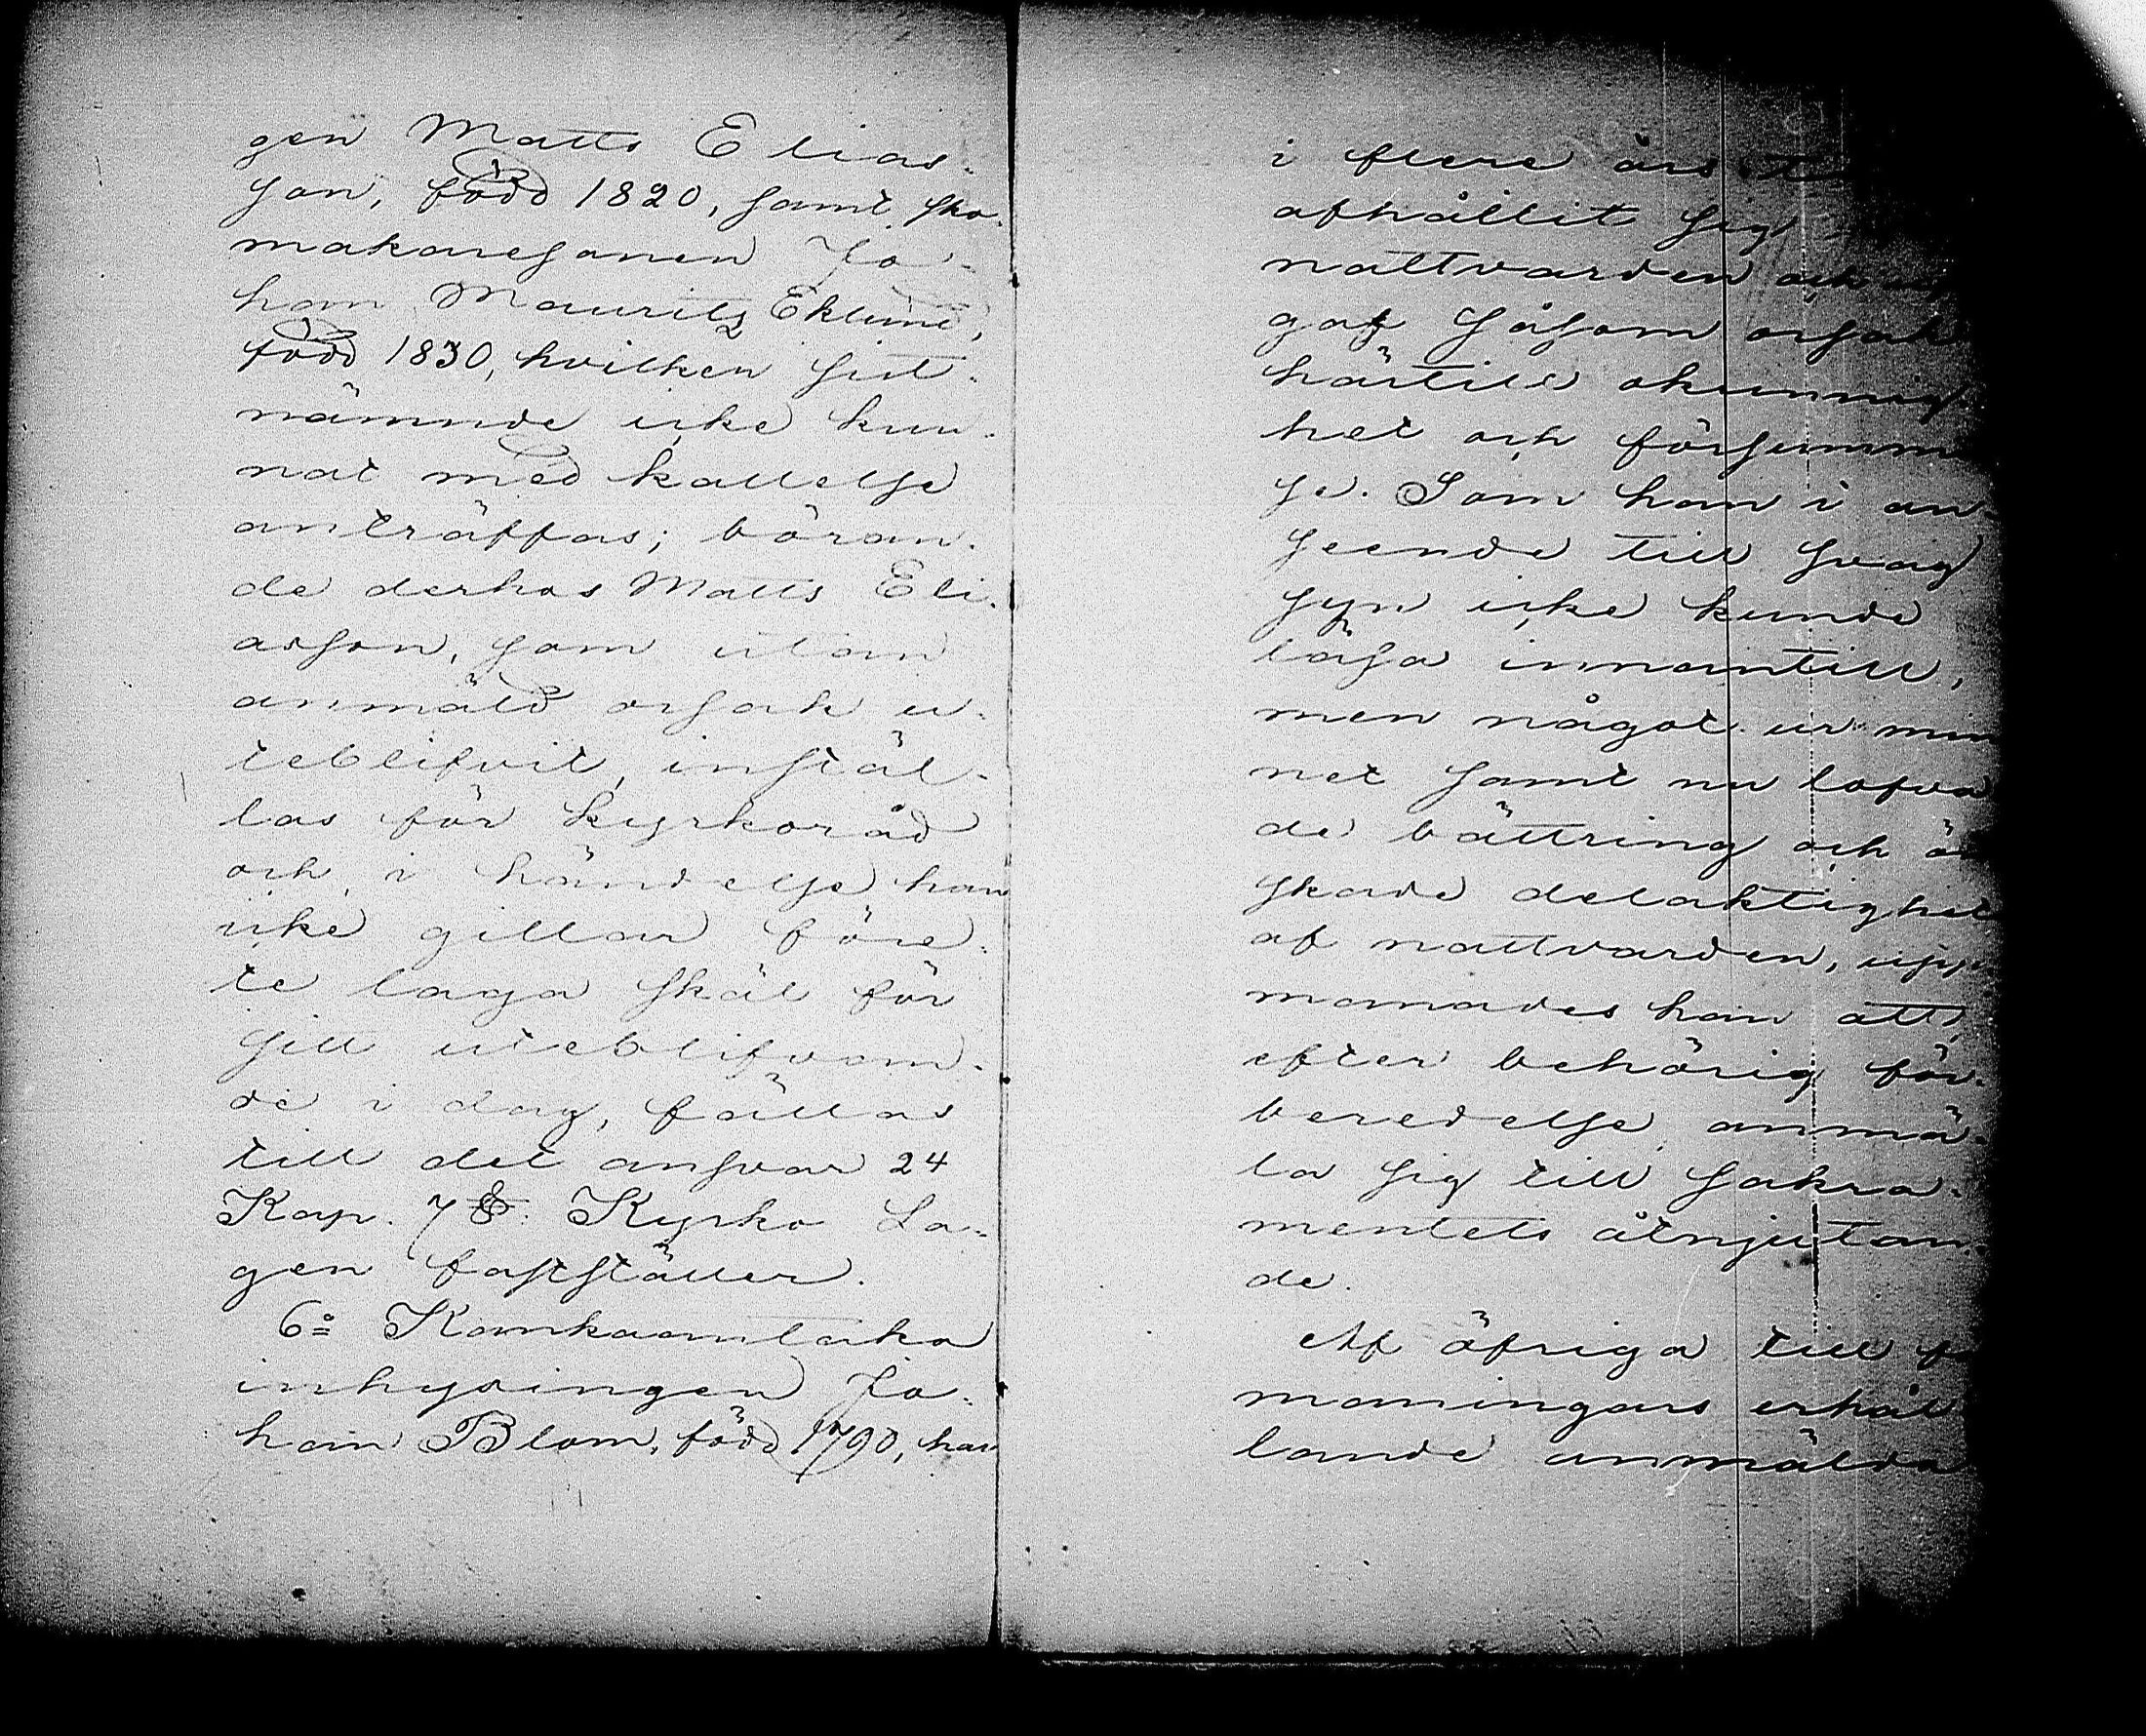 gen Matts Elias-
son, född 1820, samt sko-
makaresonen Jo-
han Mauritz Eklund,
född 1830, hvilken sist-
nämnde icke kun-
nat med kallelse
anträffas; böran-
de derhos Matts Eli-
asson, som utan
anmäld orsak u-
teblifvit, instäl-
las för kyrkoråd
och, i händelse han
icke gitter före-
te laga skäl för
sitt uteblifvan-
de i dag, fällas
till det ansvar 24
Kap. 7 §. Kyrko La-
gen fastställer.
6:o Konkaantaka
inhysingen Jo-
han Blom, född 1790, har
i flere års
afhållit sig
nattvarden och
gaf såsom orsak
härtill okunnig-
het och försumm
se. Som han i an-
seende till svag
syn icke kunde
läsa innantill,
men något ur min
net samt nu lofva
de bättring och
skade delaktighet
af nattvarden, upp
manades han att,
efter behörig för-
beredelse, anmä-
la sig till sakra-
mentets åtnjutan-
de.
Af öfriga till
maningars erhål
lande anmälda